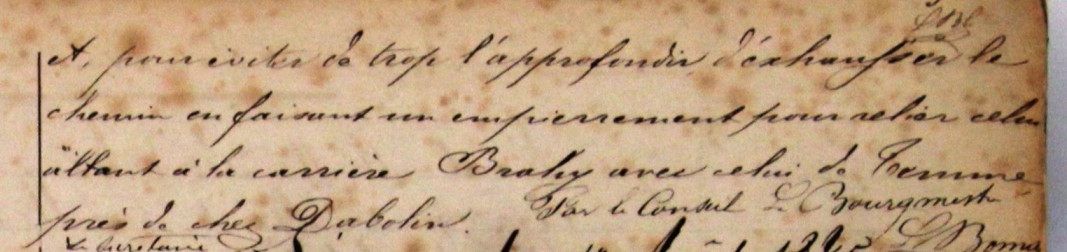 et, pour éviter de trop l'approfondir, d'exhausser le
chemin en faisant un empierrement pour relier celui
allant à la carrière Brahy avec celui de Tamme
près de chez Dabolin. Par le Conseil Le Bourgmestre
Le Secrétaire